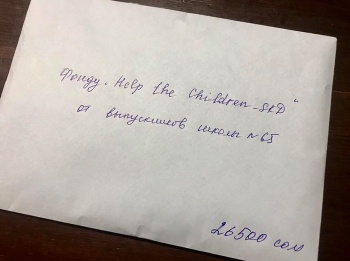 Фонду „Help the Children-SKD"
от выпускников школы №65
26500 сом